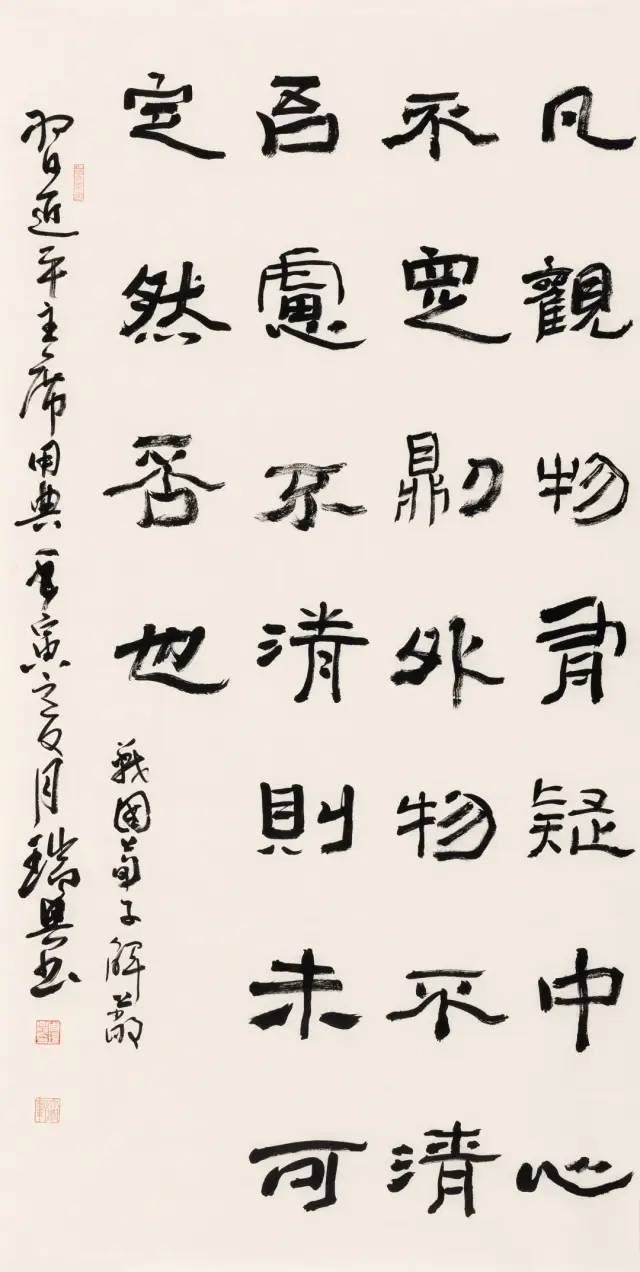 凡觀物有疑中心
不定則外物不清
吾慮不清則未可
定然否也
戰國荀子解蔽
習近平主席用典壬寅之夏月瑞興書